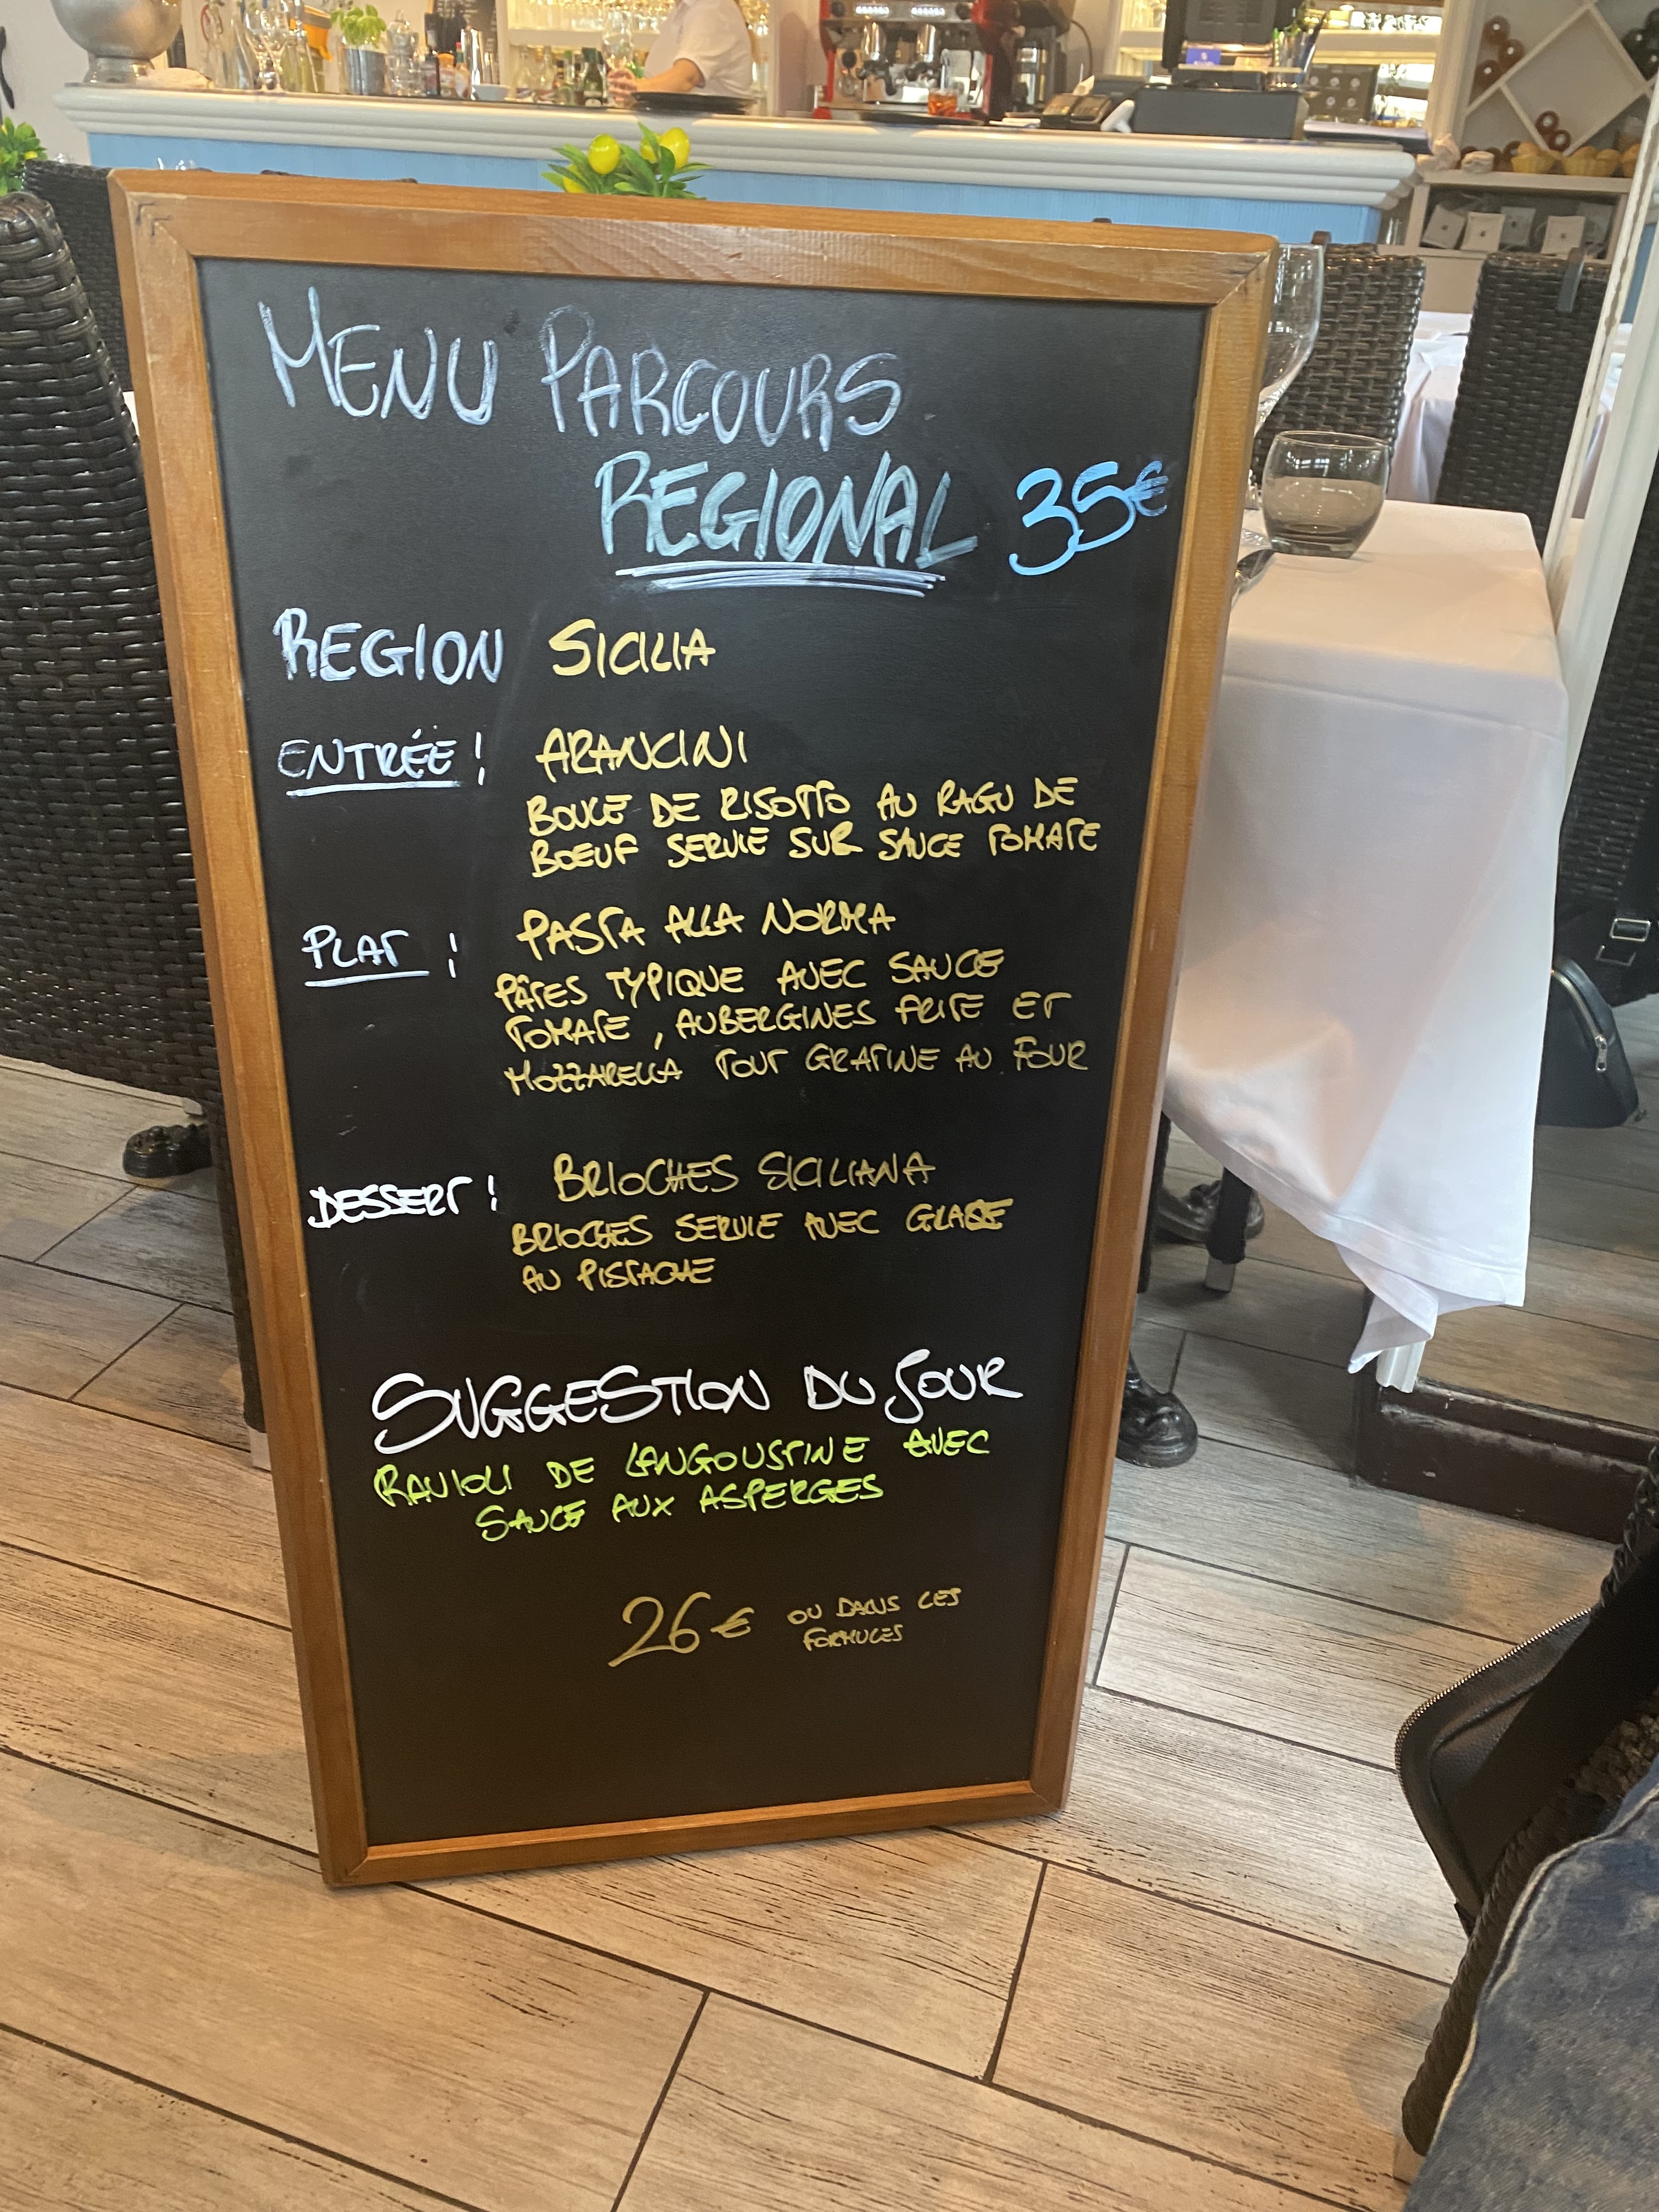 MENU PARCOURS
REGIONAL 35€
REGION SICILIA
ENTRÉE : ARANCINI
BOULE DE RISOTTO AU RAGU DE
BOEUF SERVIE SUR SAUCE TOMATE
PLAT : PASTA ALLA NORMA
PÂTES TYPIQUE AVEC SAUCE
TOMATE, AUBERGINES FRITE ET
MOZZARELLA TOUT GRATINE AU FOUR
DESSERT : BRIOCHES SICILIANA
BRIOCHES SERVIE AVEC GLACE
AU PISTACHE
SUGGESTION DU JOUR
RAVIOLI DE LANGOUSTINE AVEC
SAUCE AUX ASPERGES
26€ OU DANS LES
FORMULES